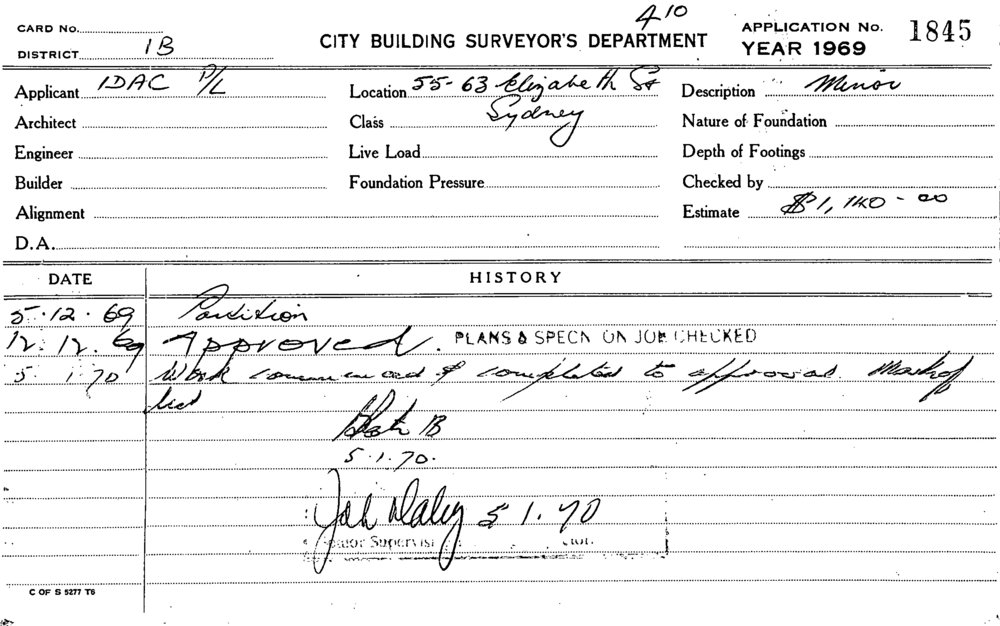 410
CARD No.
APPLICATION No. 1845
DISTRICT 1B
CITY BUILDING SURVEYOR'S DEPARTMENT
YEAR 1969
Applicant IDAC P/L
Location 55-63 Elizabeth St
Sydney
Description Minor
Architect
Class
Nature of Foundation
Engineer
Live Load
Depth of Footings
Builder
Foundation Pressure
Checked by
Alignment
Estimate $1,140-00
D.A.
DATE
HISTORY
5.12.69 Partition
12.12.69 Approved. PLANS & SPECN ON JOB CHECKED
5.1.70 Work commenced & completed to approval. Mark off
list
B
5.1.70.
Daley 5 1.70
Senior Supervisi
C OF S 5277 T6